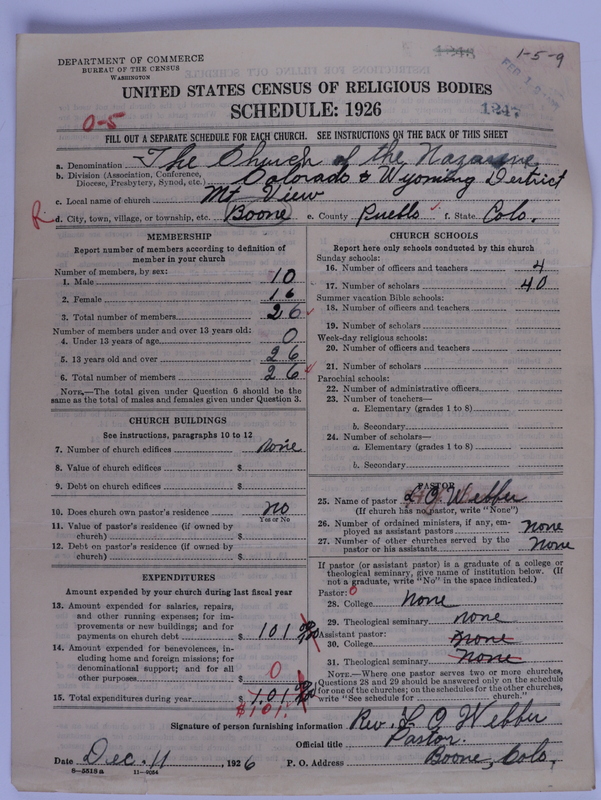 DEPARTMENT OF COMMERCE
BUREAU OF THE CENSUS
WASHINGTON
1248
1-5-9
UNITED STATES CENSUS OF RELIGIOUS BODIES
SCHEDULE: 1926
1247
0-5
FILL OUT A SEPARATE SCHEDULE FOR EACH CHURCH. SEE INSTRUCTIONS ON THE BACK OF THIS SHEET
a. Denomination The Church of the Nazarene
b. Division (Association, Conference, Diocese, Presbytery, Synod, etc.) Colorado & Wyoming District
c. Local name of church Mt View
R. d. City, town, village, or township, etc. Boone e. County Pueblo f. State Colo.
MEMBERSHIP
Report number of members according to definition of
member in your church
Number of members, by sex:
1. Male 10
2. Female 16
3. Total number of members 26
Number of members under and over 13 years old:
4. Under 13 years of age 0
5. 13 years old and over 26
6. Total number of members 26
NOTE.—The total given under Question 6 should be
same as the total of males and females given under Question 3.
CHURCH BUILDINGS
See instructions, paragraphs 10 to 12
7. Number of church edifices none
8. Value of church edifices $
9. Debt on church edifices $
10. Does church own pastor's residence? no
Yes or No
11. Value of pastor's residence (if owned by
church) $
12. Debt on pastor's residence (if owned by
church) $
EXPENDITURES
Amount expended by your church during last fiscal year
13. Amount expended for salaries, repairs,
and other running expenses; for im-
provements or new buildings; and for
payments on church debt $ 101
14. Amount expended for benevolences, in-
cluding home and foreign missions; for
denominational support; and for all
other purposes 0
15. Total expenditures during year $ 101
$101.
CHURCH SCHOOLS
Report here only schools conducted by this church
Sunday schools:
16. Number of officers and teachers 4
17. Number of scholars 40
Summer vacation Bible schools:
18. Number of officers and teachers
19. Number of scholars
Week-day religious schools:
20. Number of officers and teachers
21. Number of scholars
Parochial schools:
22. Number of administrative officers
23. Number of teachers—
a. Elementary (grades 1 to 8)
b. Secondary
24. Number of scholars—
a. Elementary (grades 1 to 8)
b. Secondary
PASTOR
25. Name of pastor L O Webber
(If church has no pastor, write "None")
26. Number of ordained ministers, if any, em-
ployed as assistant pastors none
27. Number of other churches served by the
pastor or his assistants none
If pastor (or assistant pastor) is a graduate of a college or
theological seminary, give name of institution below. (If
not a graduate, write "No" in the space indicated.)
Pastor: 0
28. College None
29. Theological seminary none
Assistant pastor:
30. College None
31. Theological seminary None
NOTE.—Where one pastor serves two or more churches,
Questions 28 and 29 should be answered only on the schedule
for one of the churches; on the schedules for the other churches,
write "See schedule for church."
Signature of person furnishing information Rev. L O Webber
Official title Pastor.
Date Dec. 11, 1926 P. O. Address Boone, Colo.
8—5518a 11—9084